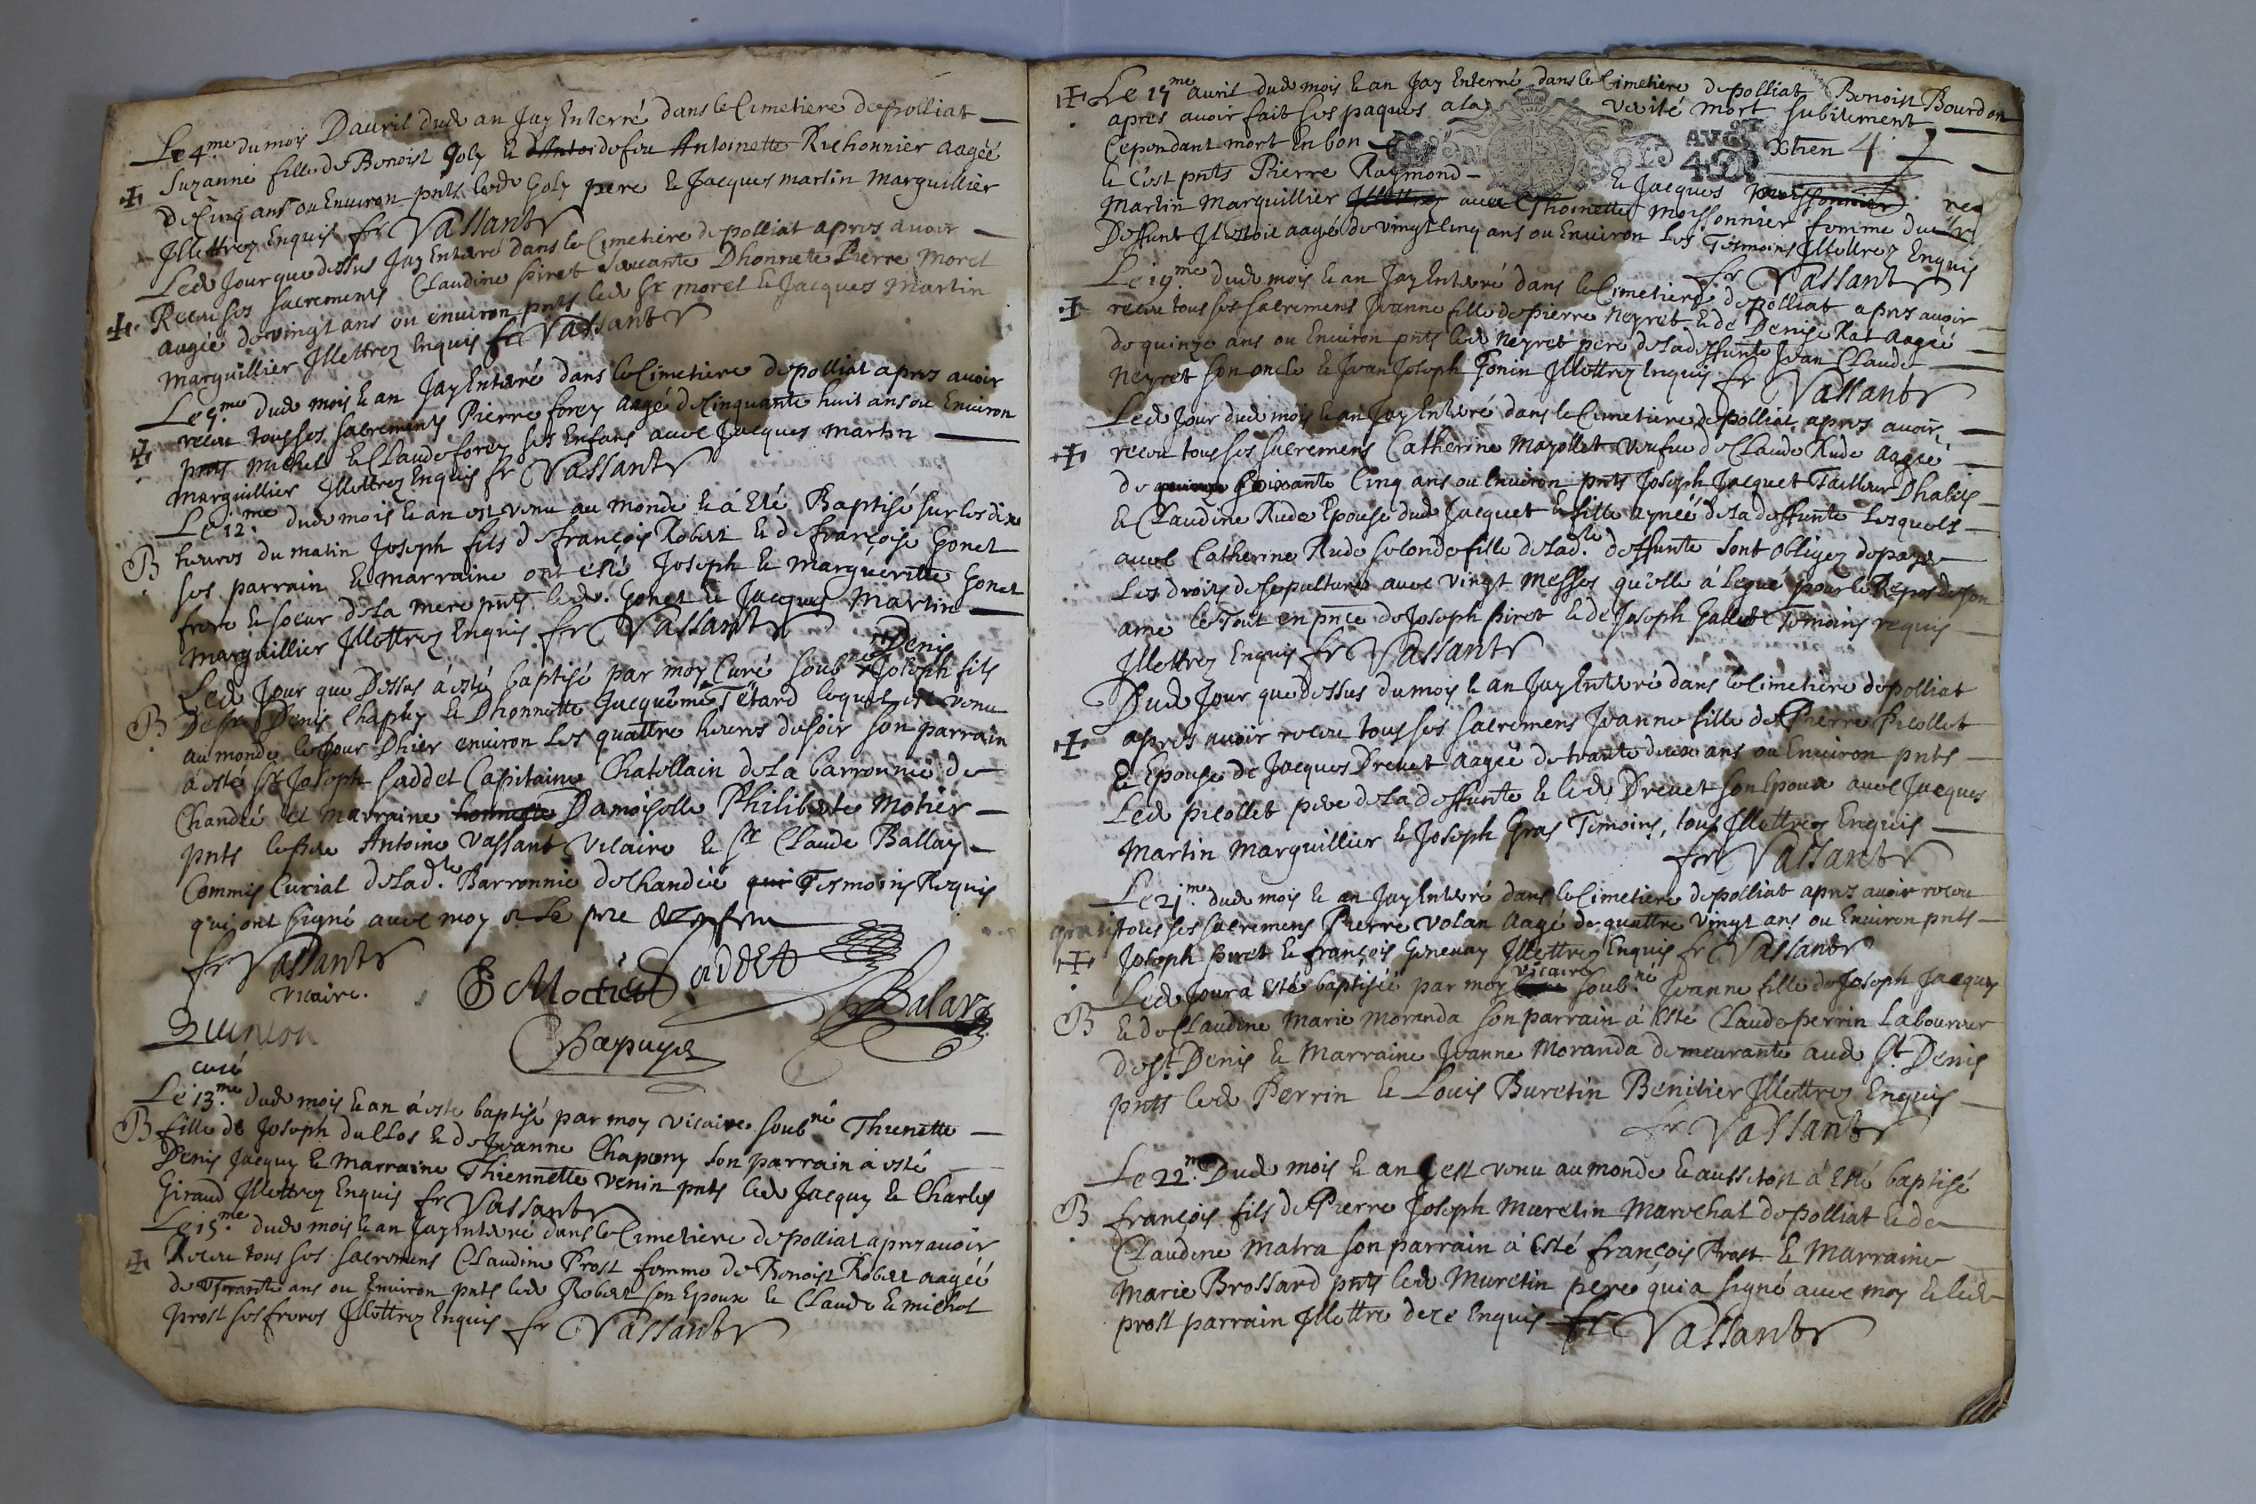 Le 4.me du mois Dauril dud an Jay Enterré dans le Cimetiere de polliat
Suzanne fille de Benoist Joly & de feu Antoinette Richonnier aagéé
de Cinq ans ou Enuiron pnts led Joly pere & Jacques martin Marguillier
Illettrez Enquis fr Vassant
Led Jour que dessus Jay Enterré dans le Cimetiere de polliat apres auoir
Receu ses sacrements Claudine piret seruante Dhonnete Pierre Morel
aagéé de vingt ans ou enuiron pnts led Sr morel & Jacques Martin
Marguillier Illettrez Enquis fr Vassant
Le 5.me dud mois & an Jay Enterré dans le Cimetiere de polliat apres auoir
receu tous ses sacremens Pierre forey aagé de Cinquante huit ans ou Enuiron
pnts michel & Claude forey ses Enfans auec Jacques Martin
Marguillier Illettrez Enquis fr Vassant
Le 12.me dud mois & an est venu au monde & á Eté Baptisé sur les dix
B heures du matin Joseph fils de françois Robert & de françoise Gonet
ses parrain & marraine ont esté Joseph & Margueritte Gonet
frere & soeur de la mere pnts led. Gonet & Jacques Martin
Marguillier Illettrez Enquis fr Vassant
Denis
Led Jour que Dessus á esté baptisé par moy Curé soub.né Joseph fils
B De Sr Denis Chapuy & Dhonnette Jacquême Tétard lequel est venu
au monde le Jour Dhier enuiron les quattre heures du soir son parrain
á esté Sr Joseph saddet Capitaine Chatellain de la barronnie de
Chandéé et marraine honneste Damoiselle Philiberte Motier
pnts Antoine Vassant Vicaire & Sr Claude Ballay
Commis Curial de lad.te Barronnie de Chandéé qui Tesmoins Requis
qui ont signé auec moy & le pere
fr Vassant
vicaire.
Motier
saddet
Balay
Chapuys
Quinson
curé
Le 13.me dud mois & an á este baptisé par moy vicaire soub.né Thienette
B fille de Joseph du Clos & de Jeanne Chapony son parrain á esté
Denis Jacquy & marraine Thiennette venin pnts led Jacquy & Charles
Giraud Illettrez Enquis fr Vassant
Le 15.me dud mois & an Jay Enterré dans le Cimetiere de polliat apres auoir
Receu tous ses sacremens Claudine Prost femme de Benoist Robert aagéé
de trante ans ou Enuiron pnts led Robert son Epoux & Claude & michel
prost ses freres Illettrez Enquis fr Vassant
Le 17.me auril dud mois & an Jay Enterré dans le Cimetiere de polliat Benoist Bourdon
apres auoir fait ses paques a la verité mort subitement
Cependant mort En bon Xtien 4
AVG
& C'est pnts Pierre Raymond & Jacques
Martin Marguillier auec Thoinette Moissonnier femme du
Deffunt Il estoit aagé de vingt cinq ans ou Enuiron les Tesmoins Illettrez Enquis
fr Vassant
Le 19.me dud mois & an Jay Enterré dans le Cimetiere de polliat apres auoir
receu tous ses sacremens Jeanne fille de pierre Neyret & de Denise Rat aagéé
de quinze ans ou Enuiron pnts led Neyret pere de la deffunte Jean Claude
Neyret son oncle & Jean Joseph Gonin Illettrez Enquis fr Vassant
Led Jour dud mois & an Jay Enterré dans le Cimetiere de polliat apres auoir
receu tous ses sacremens Catherine Mazollet veufue de Claude Rude aagéé
de quinze soixante Cinq ans ou Enuiron pnts Joseph Jacquet Tailleur Dhabis
& Claudine Rude Epouse dud Jacquet & fille aynéé de la deffunte lesquels
auec Catherine Rude seconde fille de lad.te deffunte sont obligez de payer
Les droits de sepulture auec vingt messes qu'elle á legué pour le Repos de son
ame le Tout en pnce de Joseph piret & de Joseph Gallet Témoins requis
Illettrez Enquis fr Vassant
Dud Jour que dessus du mois & an Jay Enterré dans le Cimetiere de polliat
apres auoir receu tous ses sacremens Jeanne fille de Pierre Picollet
& Epouse de Jacques Dreuet aagéé de trante deux ans ou Enuiron pnts
Led picollet pere de la deffunte & led Dreuet son Epoux auec Jacques
Martin Marguillier & Joseph Gras Temoins, tous Illettrez Enquis
fr Vassant
Le 21.me dud mois & an Jay Enterré dans le Cimetiere de polliat apres auoir receu
gratis tous ses sacremens Pierre volan aagé de quattre vingt ans ou Enuiron pnts
Joseph piret & françois Geneuay Illettrez Enquis fr Vassant
vicaire
Led Jour á esté baptiséé par moy soub.né Jeanne fille de Joseph Jacquy
B & de Claudine Marie Moranda son parrain á Esté Claude perrin Laboureur
de St. Denis & Marraine Jeanne Moranda demeurante aud St Denis
pnts led Perrin & Louis Buretin Benitier Illettrez Enquis
fr Vassant
Le 22.me Dud mois & an est venu au monde & aussitost á Esté baptisé
B françois fils de Pierre Joseph Muretin Marechal de polliat & de
Claudine Matra son parrain á Esté françois Prost & Marraine
Marie Brossard pnts led Muretin pere qui a signé auec moy & led
prost parrain Illettré de ce Enquis fr Vassant